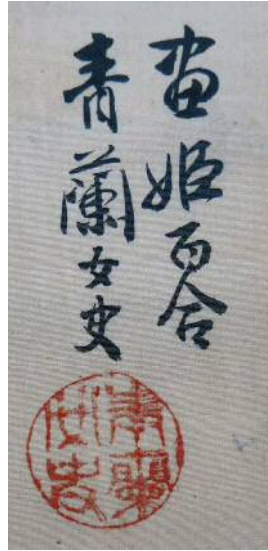 画姫百合
青蘭女史
青蘭
女史